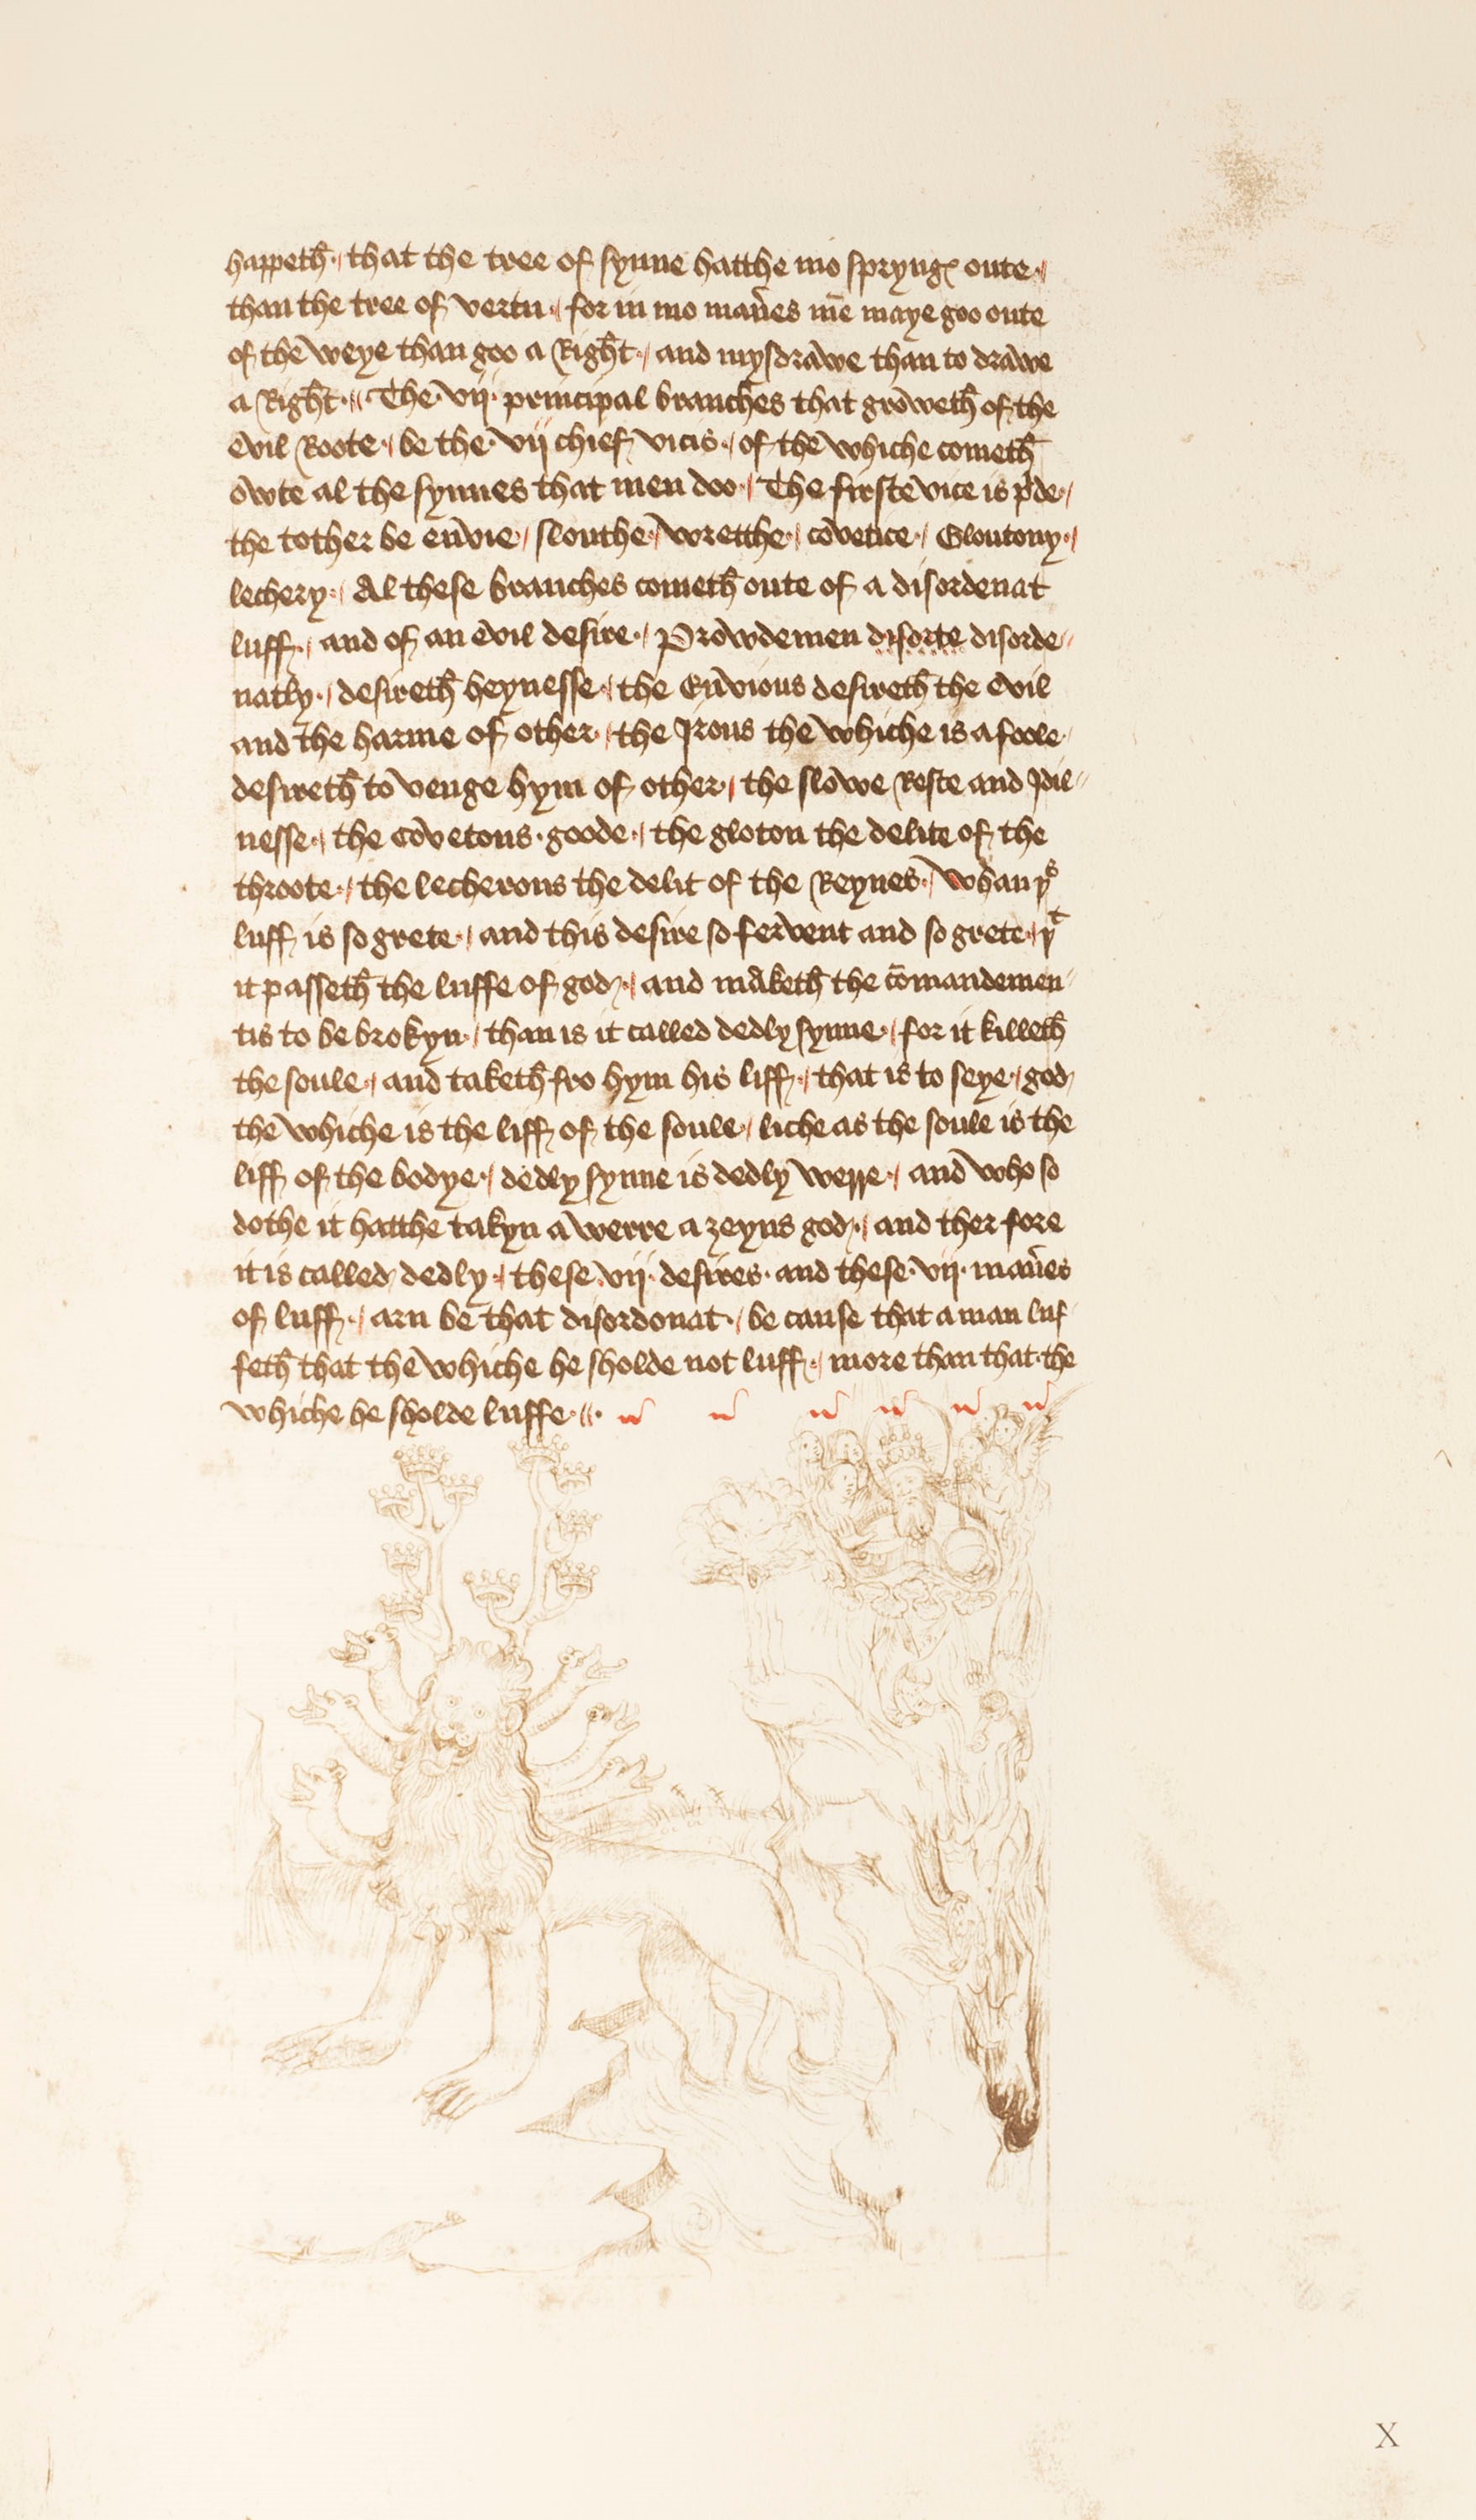 happeth · / that the tree of synne hatthe mo spryng oute · /
than the tree of vertu · / for in mo man̄es mē maye goo oute
of the weye than goo a Right · / and mysdrawe than to drawe
a Right · // The · vij · principal branches that groweth of the
evil Roote · / be the · vij chief vicis · / of the whiche cometh
owte al the synnes that men doo · / The firste vice is pͥde · /
the tother be envie · / slouthe · / wretthe · / covetice · / Gloutony · /
lechery · / Al these branches cometh oute of a disordenat
luff · / and of an evil desire · / Prowdemen disorte disorde //
natly · / desireth heynesse · / the Envious desireth the evil
and the harme of other · / the Jrous the whiche is a foole ·
desireth to venge hym of other · / the slowe Reste and Jdil //
nesse · / the Covetous · goode · / the gloton the delite of the
throote · / the lecherous the delit of the Reynes · / whan yˢ
luff is so grete · / and this desire so fervent and so grete · / yᵗ
it passeth the luffe of god · / and maketh the cōmandemen /
tis to be brokyn · / than is it called dedly synne · / for it killeth
the soule · / and taketh fro hym his liff · / that is to seye · / god
the whiche is the liff of the soule · / liche as the soule is the
liff of the bodye · / dedly synne is dedly werre · / and who so
dothe it hatthe takyn a werre a zeyns god · / and ther fore
it is called dedly · / these · vij · desires · and these · vij · man̄es
of luff · / arn be that disordonat · / be cause that a man luf
feth that the whiche he sholde not luff · / more than that · the
whiche he sholde luffe · // ·
X